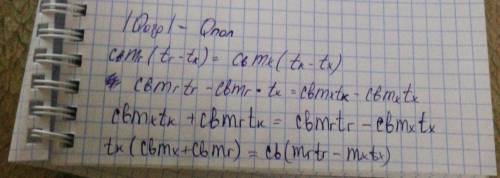 |Qотр| = Qпол
cвmг(tг-tк) = cвmх(tк-tх)
cвmгtг - cвmг · tк = cвmхtк - cвmхtх
cвmхtк + cвmгtк = cвmгtг - cвmхtх
tк(cвmх + cвmг) = cв(mгtг - mхtх)